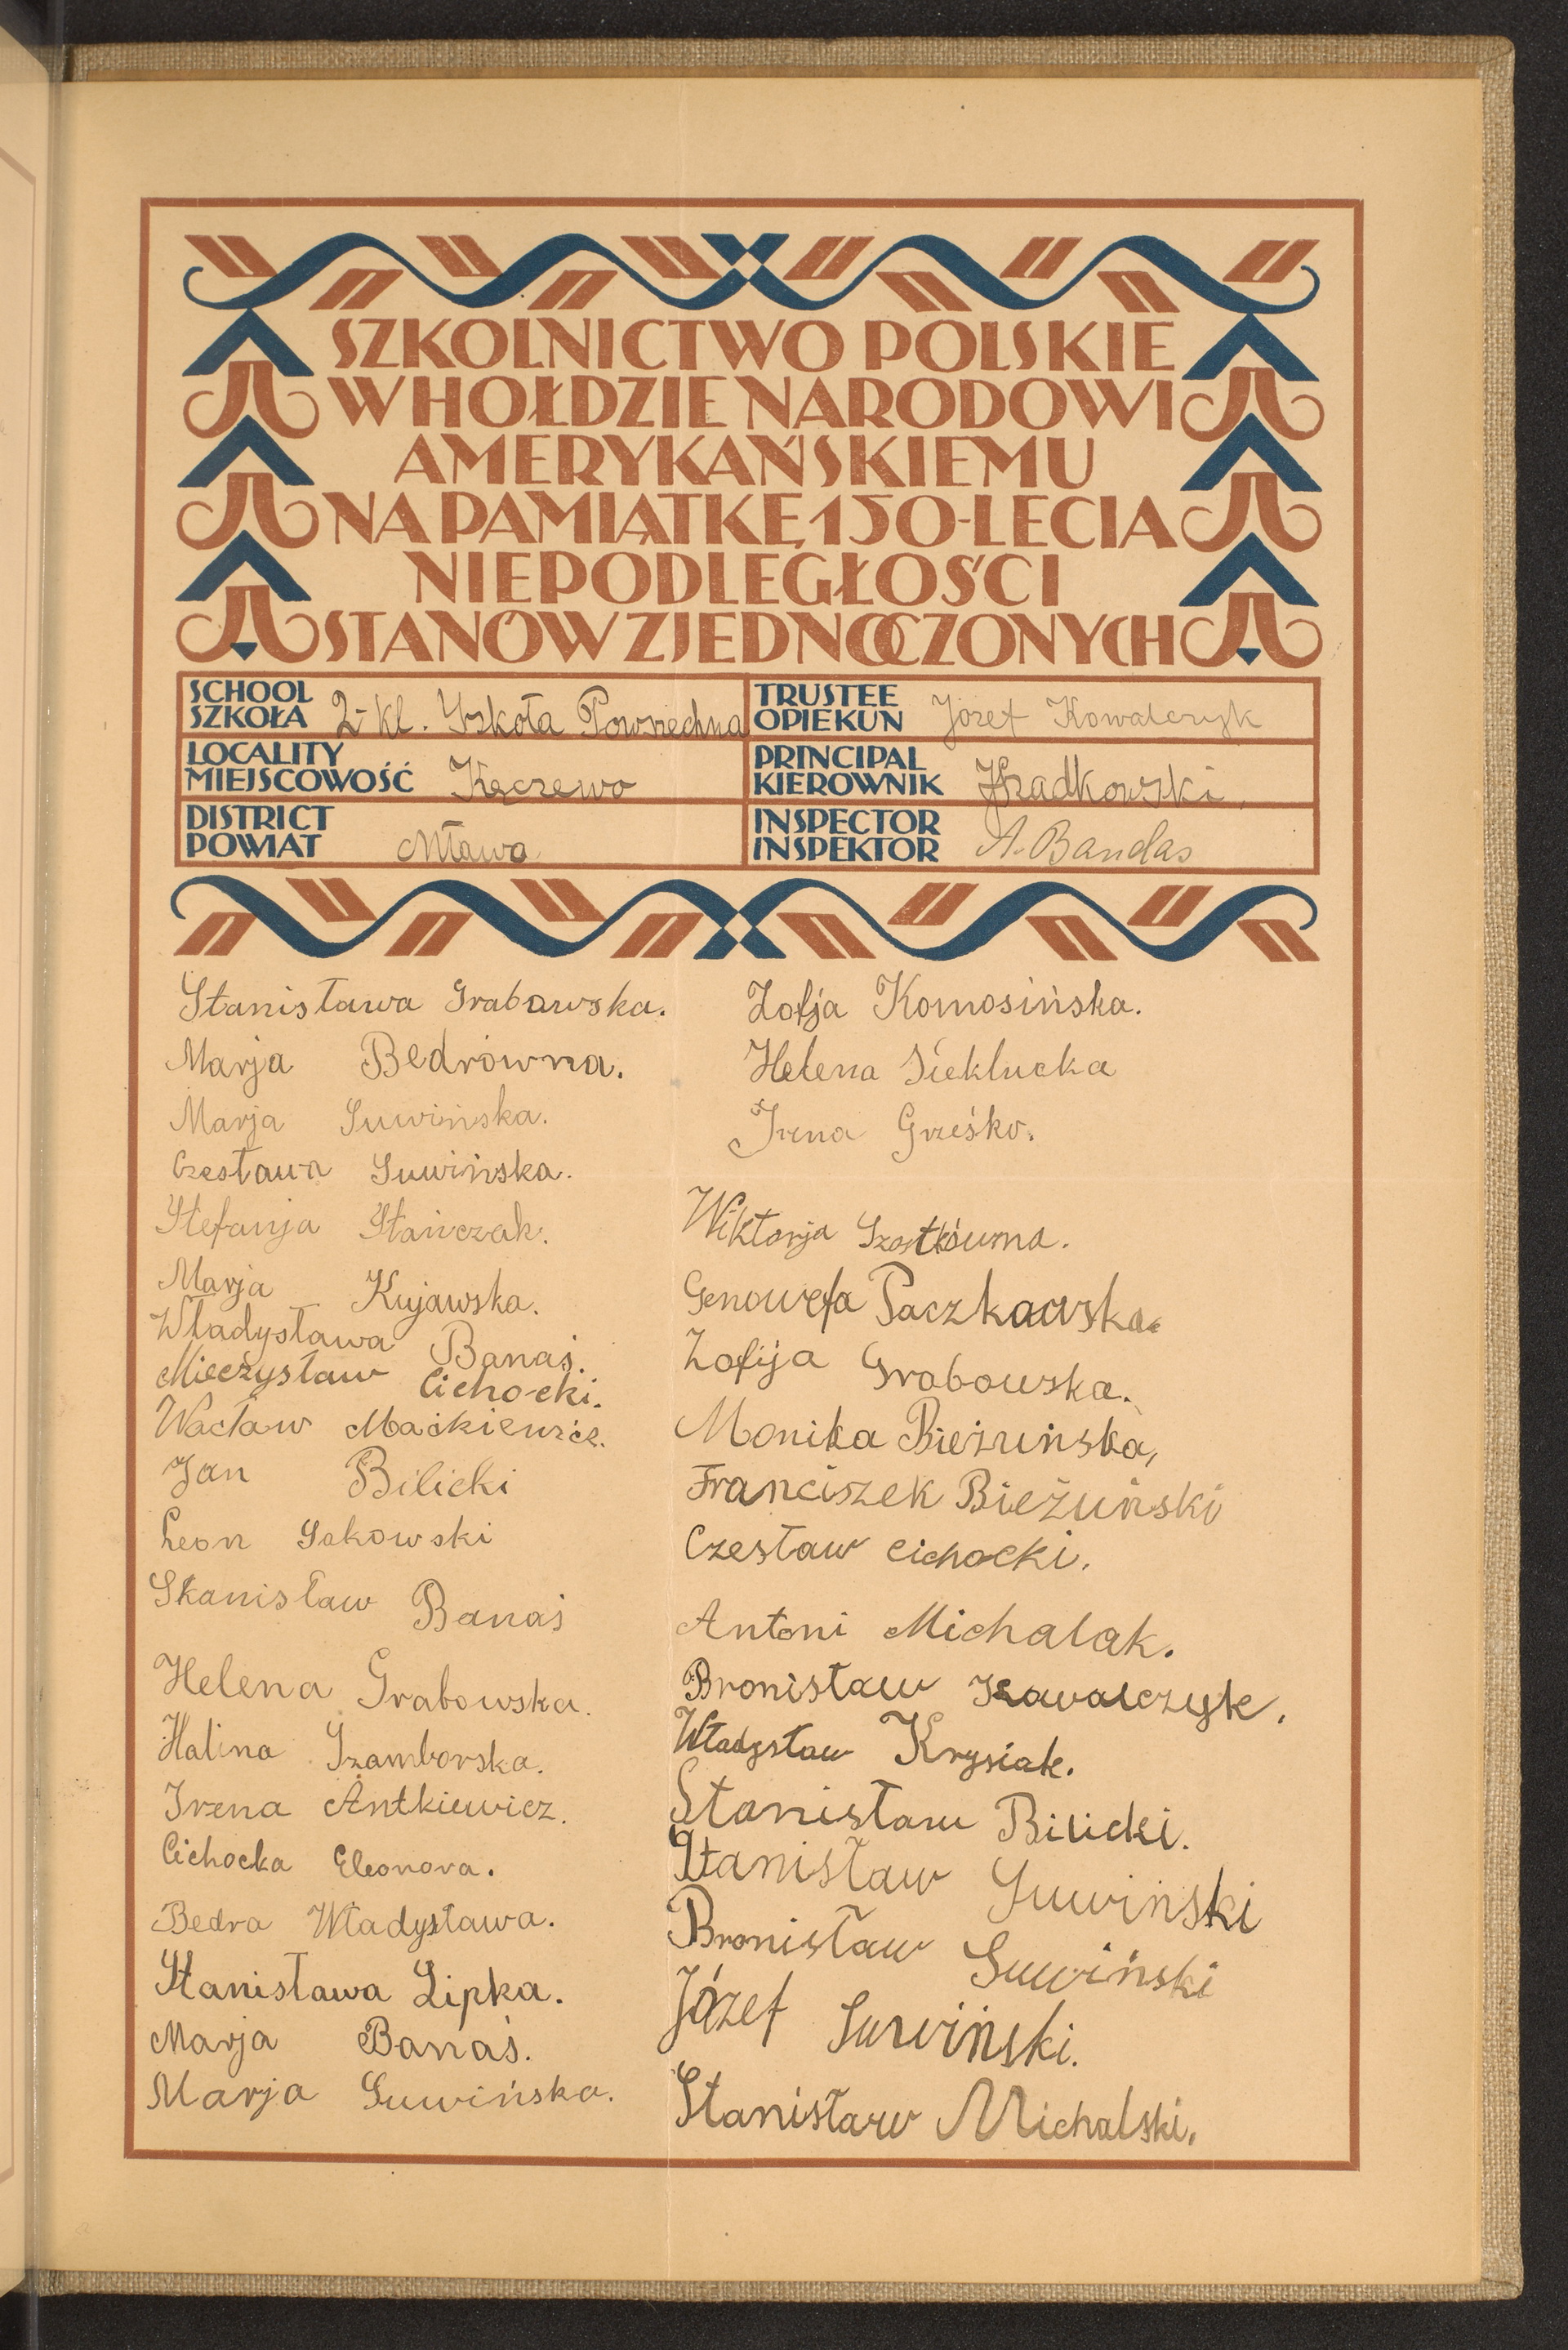 SZKOLNICTWO POLSKIE
W HOŁDZIE NARODOWI
AMERYKAŃSKIEMU
NA PAMIĄTKĘ 150-LECIA
NIEPODLEGŁOŚCI
STANÓW ZJEDNOCZONYCH
SCHOOL
SZKOŁA 2-kl. Szkoła Powszechna
LOCALITY
MIEJSCOWOŚĆ Kęczewo
DISTRICT
POWIAT Mława
TRUSTEE
OPIEKUN Józef Kowalczyk
PRINCIPAL
KIEROWNIK
INSPECTOR
INSPEKTOR A. Bandas
Stanisława Grabowska.
Marja Bedrówna.
Marja Suwińska.
Czesława Suwińska.
Stefanja Stańczak.
Marja Kujawska.
Władysława Banaś.
Mieczysław Cichocki.
Wacław Maćkiewicz.
Jan Bilicki
Leon Sakowski
Stanisław Banaś
Helena Grabowska.
Halina Szamborska.
Irena Antkiewicz.
Cichocka Eleonora.
Bedra Władysława.
Stanisława Lipka.
Marja Banaś.
Marja Suwińska.
Zofja Komosińska.
Helena Sieklucka
Irena Grześko.
Wiktorja Szostkówna.
Genowefa Paczkowska.
Zofija Grabowska.
Monika Bieżuńska,
Franciszek Bieżuński
Czesław Cichocki.
Antoni Michalak.
Bronisław Kowalczyk.
Władysław Krysiak.
Stanisław Bilicki.
Stanisław Suwiński
Bronisław Suwiński
Józef Suwiński.
Stanisław Michalski.